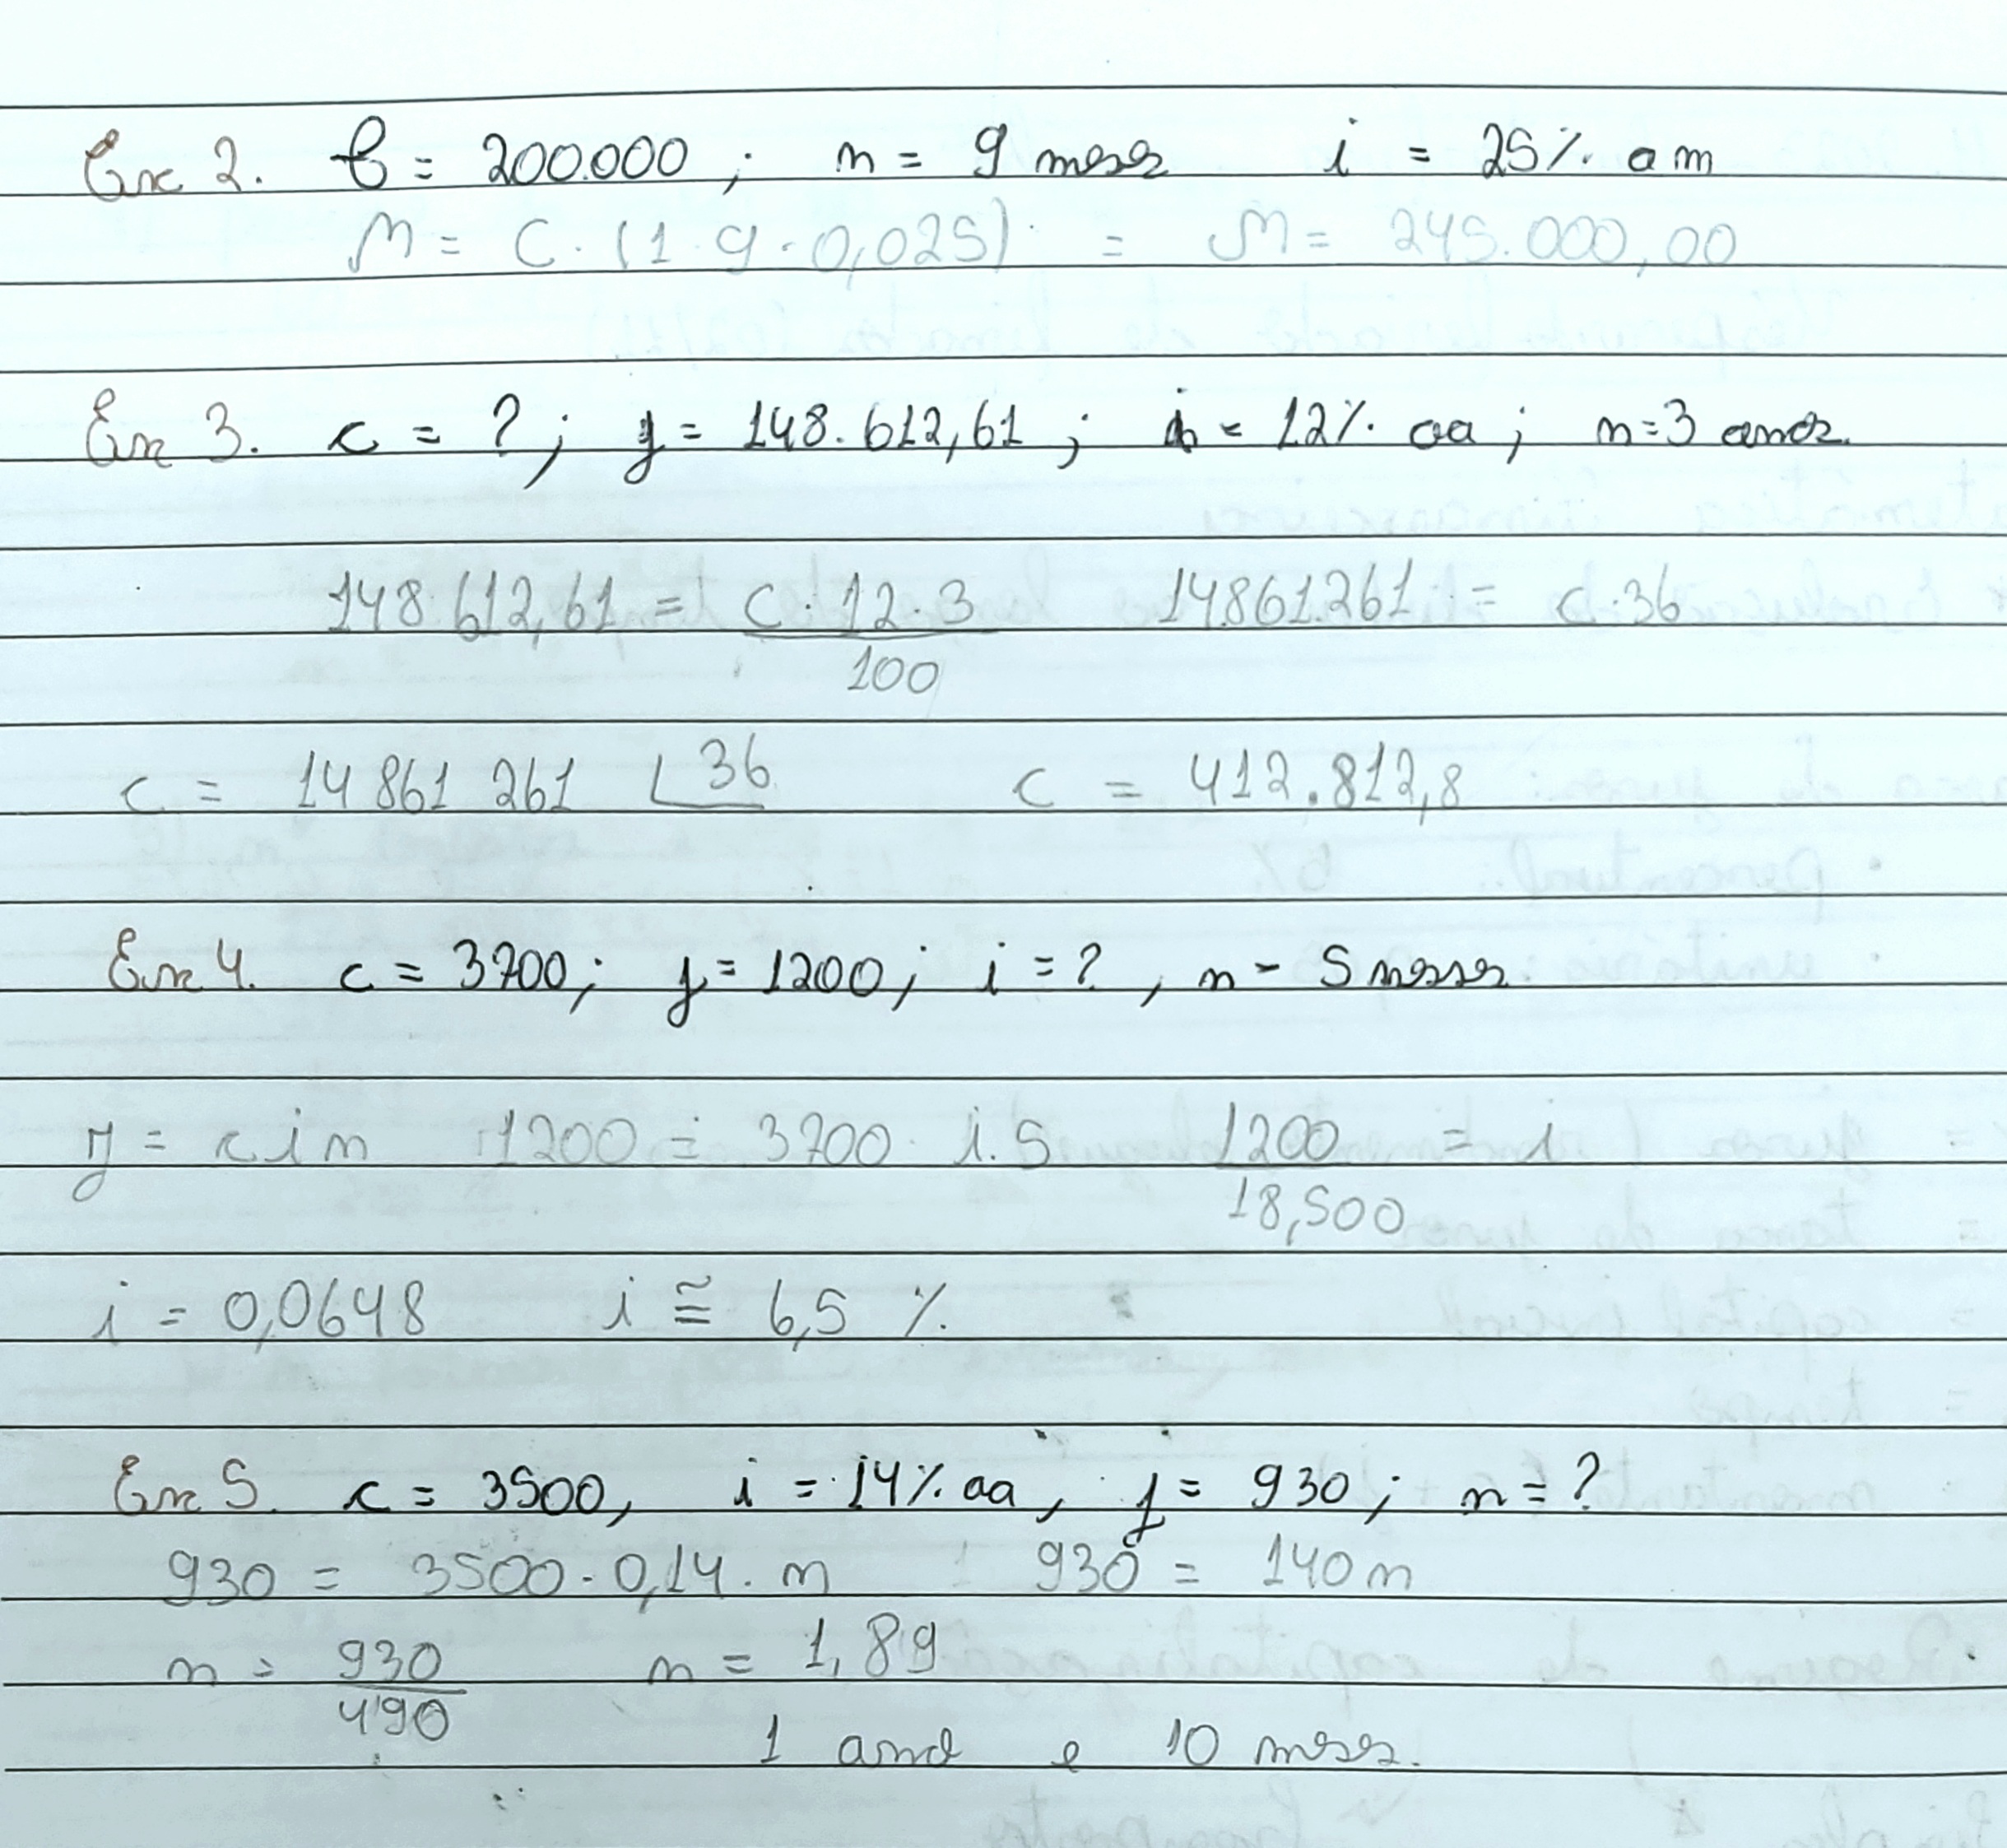 Ex 2. C = 200.000 ; n = 9 meses i = 25% am
M = C . (1 9 . 0,025) = M = 245.000,00
Ex 3. c = ? ; j = 148.612,61 ; i = 12% aa ; n = 3 anos.
148.612,61 = C . 12 . 3 14861.261 = c . 36
100
c = 14 861 261 36 c = 412.812,8
Ex 4. c = 3700 ; j = 1200 ; i = ? , n - 5 meses.
J = c i n 1200 = 3700 . i . 5 1200 = i
18,500
i = 0,0648 i ≅ 6,5 %
Ex 5. c = 3500, i = 14% aa, j = 930 ; n = ?
930 = 3500 . 0,14 . n 930 = 140 n
n = 930 n = 1,89
490
1 ano e 10 meses.